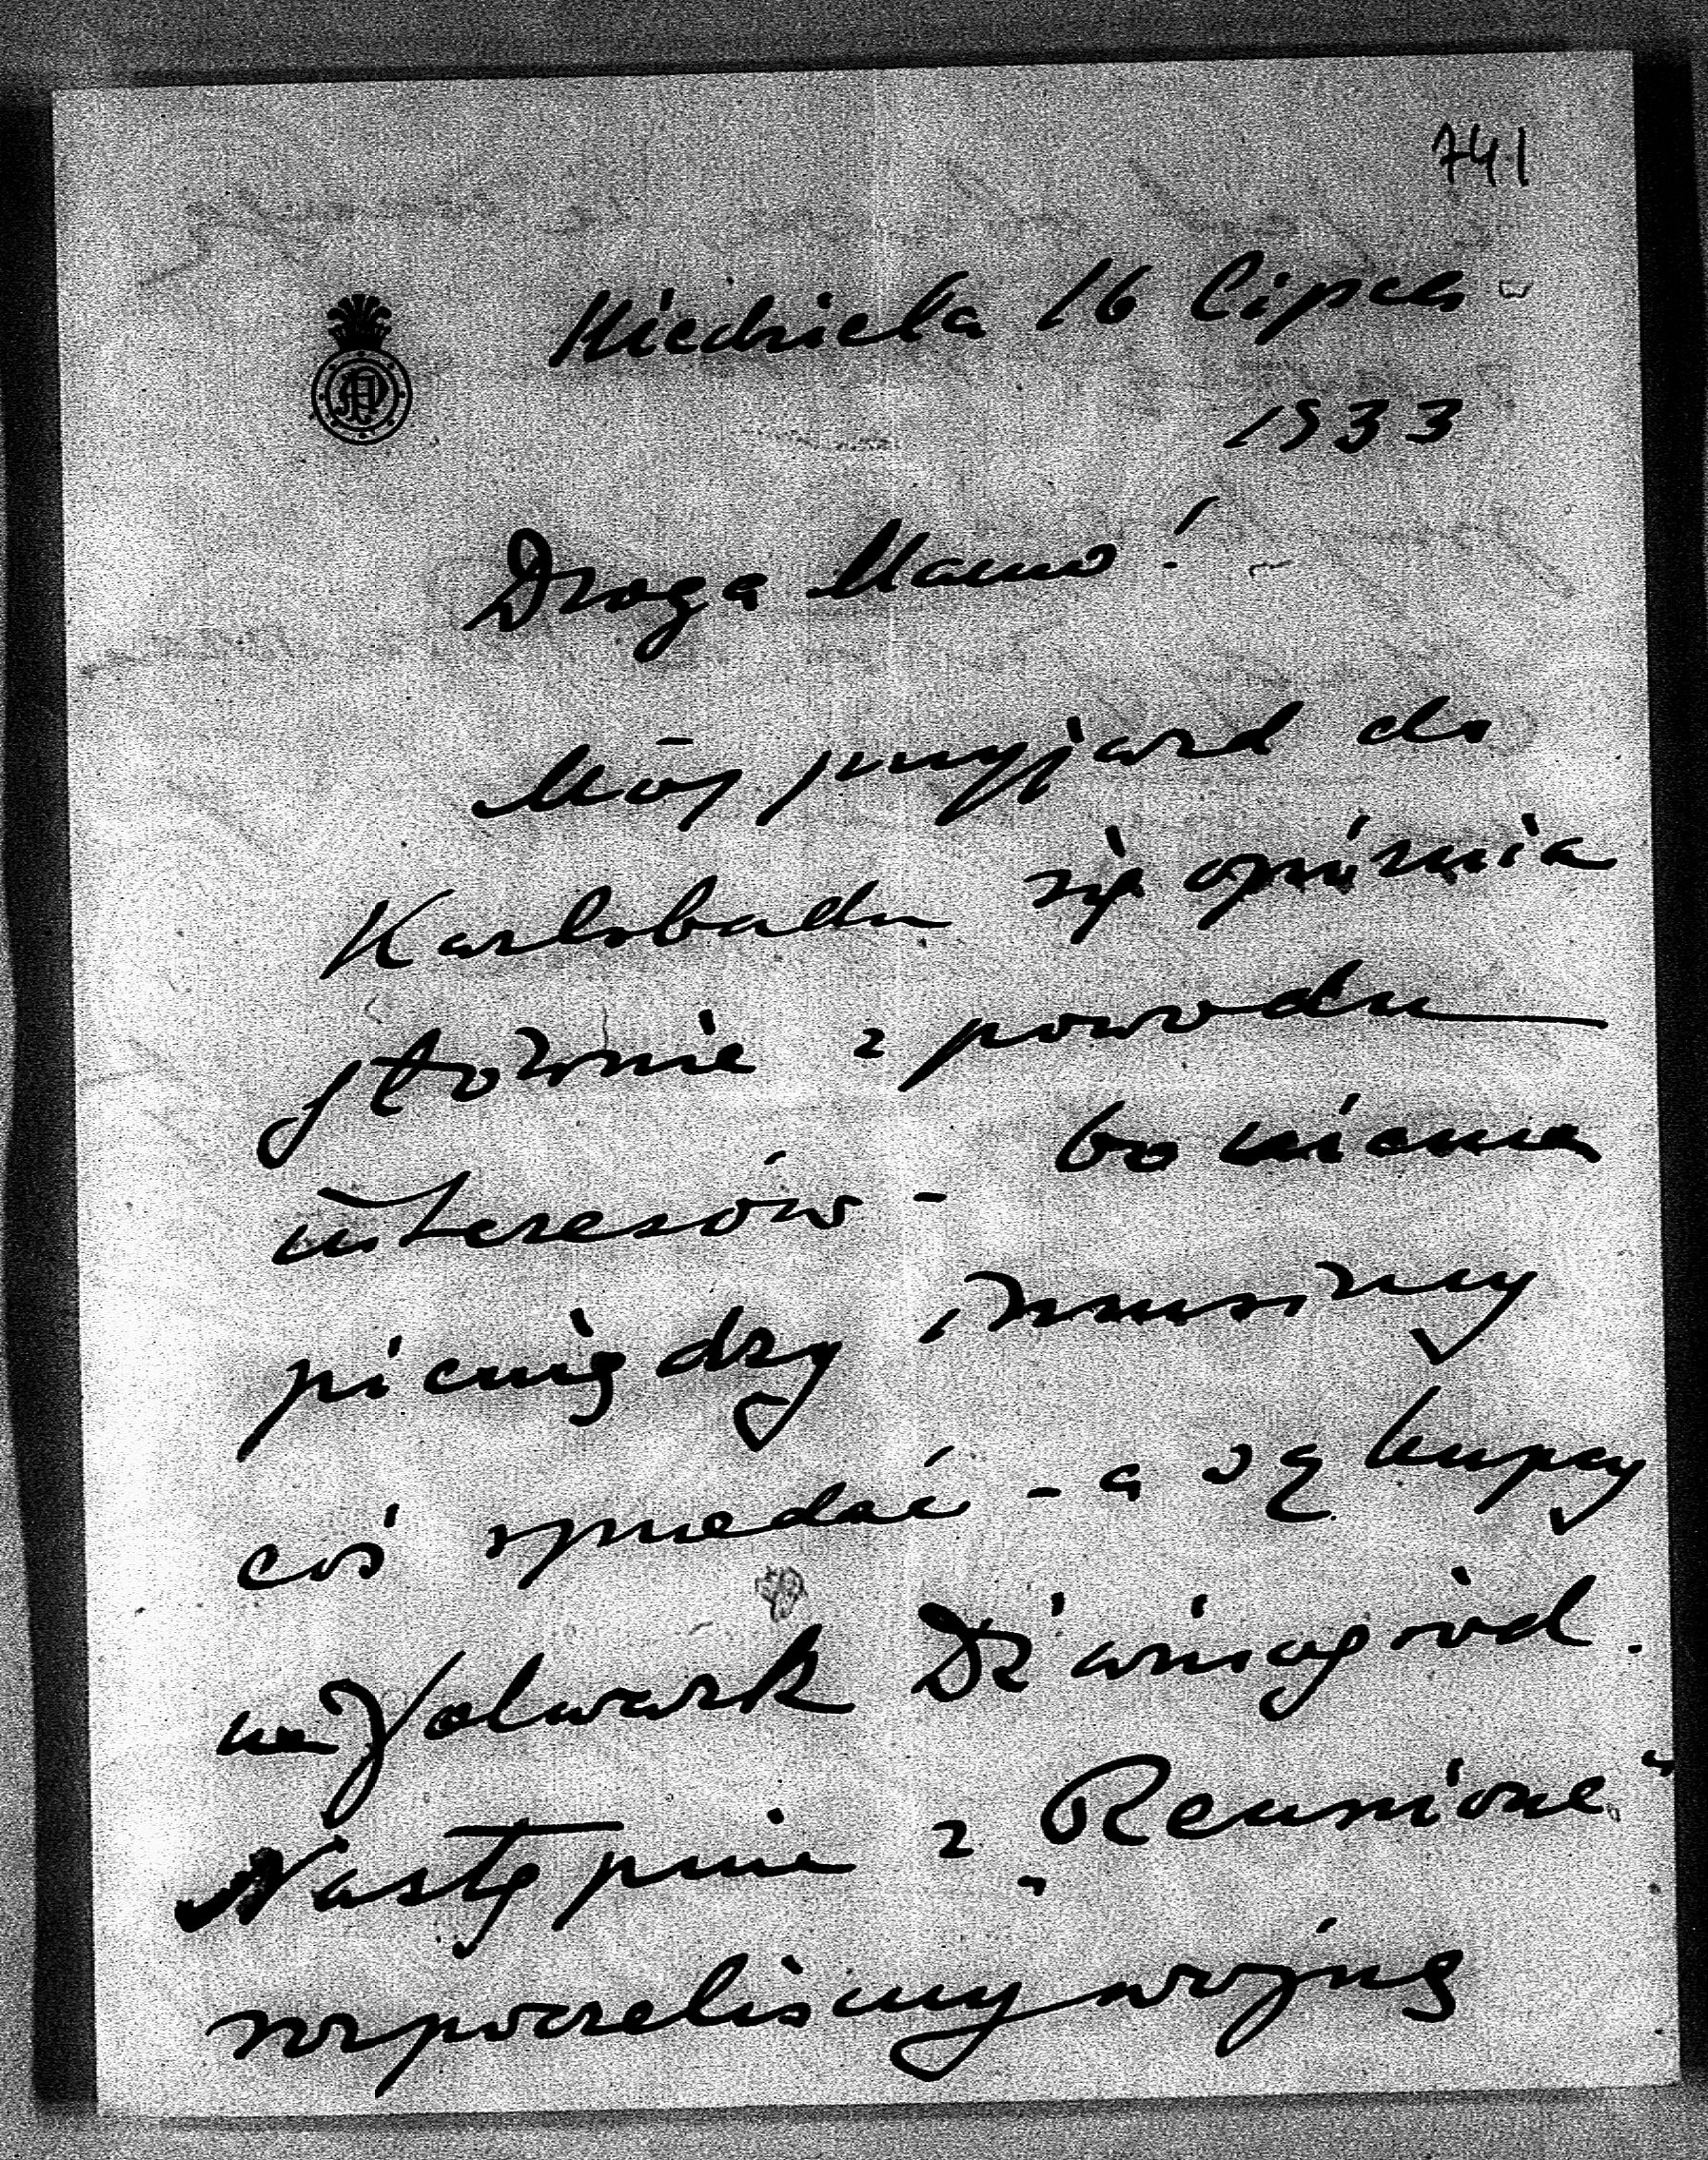 741
Niedziela 16 Lipca
1933
Droga Mamo!
Mój przyjazd do
Karlsbadu się opóźnia
głównie z powodu
interesów - bo niema
pieniędzy i musimy
coś sprzedać - a są kupcy
na Folwark Dźwinogród.
Następnie z „Reunione“
rozpoczeliśmy wojnę